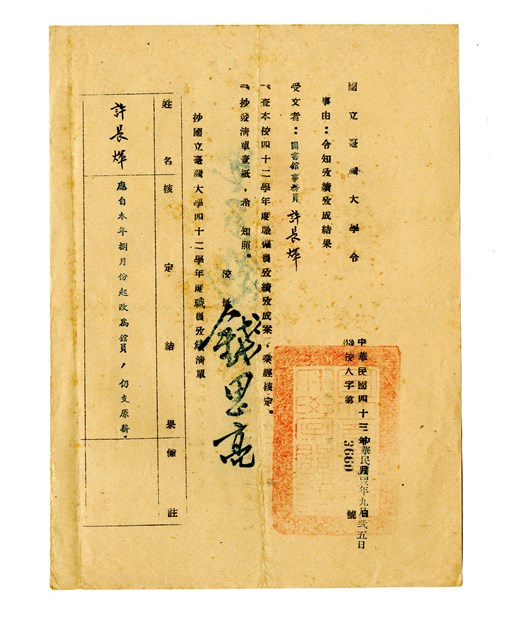 國立臺灣大學令
中華民國四十三年 月 日
中華民國四三年九月弍五日
校人字第3660號
事由：令知攷績攷成結果
受文者：圖書館事務員許長燁
一、查本校四十二學年度職僱員攷績攷成案，業經核定。
二、抄發清單壹紙，希 知照。
校長
錢思亮
抄國立臺灣大學四十二學年度職員攷績清單
姓名 核定結果 備註
許長燁 應自本年捌月份起改為館員，仍支原薪。